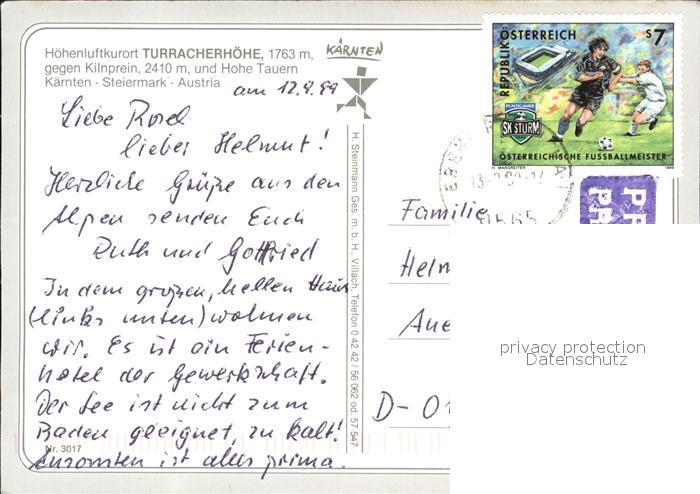 Höhenluftkurort TURRACHERHÖHE, 1763 m,
gegen Kilnprein, 2410 m, und Hohe Tauern
Kärnten - Steiermark - Austria
KÄRNTEN
am 12.9.99
Liebe Rosel
lieber Helmut!
Herzliche Grüße aus den
Alpen senden Euch
Ruth und Gottfried
In dem großen, hellen Haus
(links unten) wohnen
wir. Es ist ein Ferien-
hotel der Gewerkschaft.
Der See ist nicht zum
Baden geeignet, zu kalt!
Ansonsten ist alles prima.
Nr. 3017
H. Steinmann Ges. m. b. H., Villach, Telefon 0 42 42 / 56 062 od. 57 547
REPUBLIK ÖSTERREICH
S 7
PUNTIGAMER
SK STURM
ÖSTERREICHISCHE FUSSBALLMEISTER
H. MARGREITER
1999
9565
Familie
Helm
Aue
D- 01
privacy protection
Datenschutz